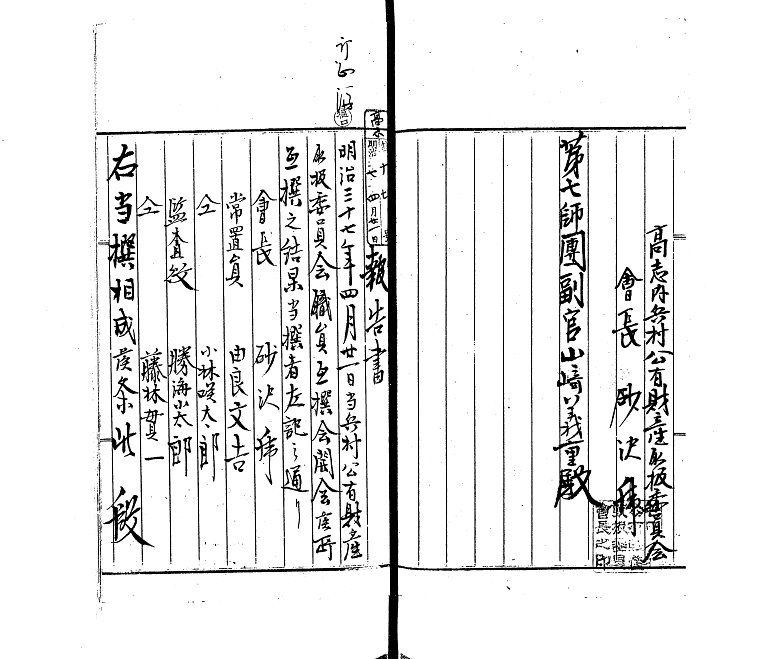 高志内兵村公有財産取扱委員会
會長 砂沢
第七師團副官山﨑義重殿
報告書
明治三十七年四月廿一日当兵村公有財産
取扱委員会職員互撰会開会候所
互撰之結果当撰者左記之通り
會長 砂沢
常置員 由良文吉
仝 小林咲太郎
監査役 勝海岩太郎
仝 藤林賢一
右当撰相成候条此段
會長之印